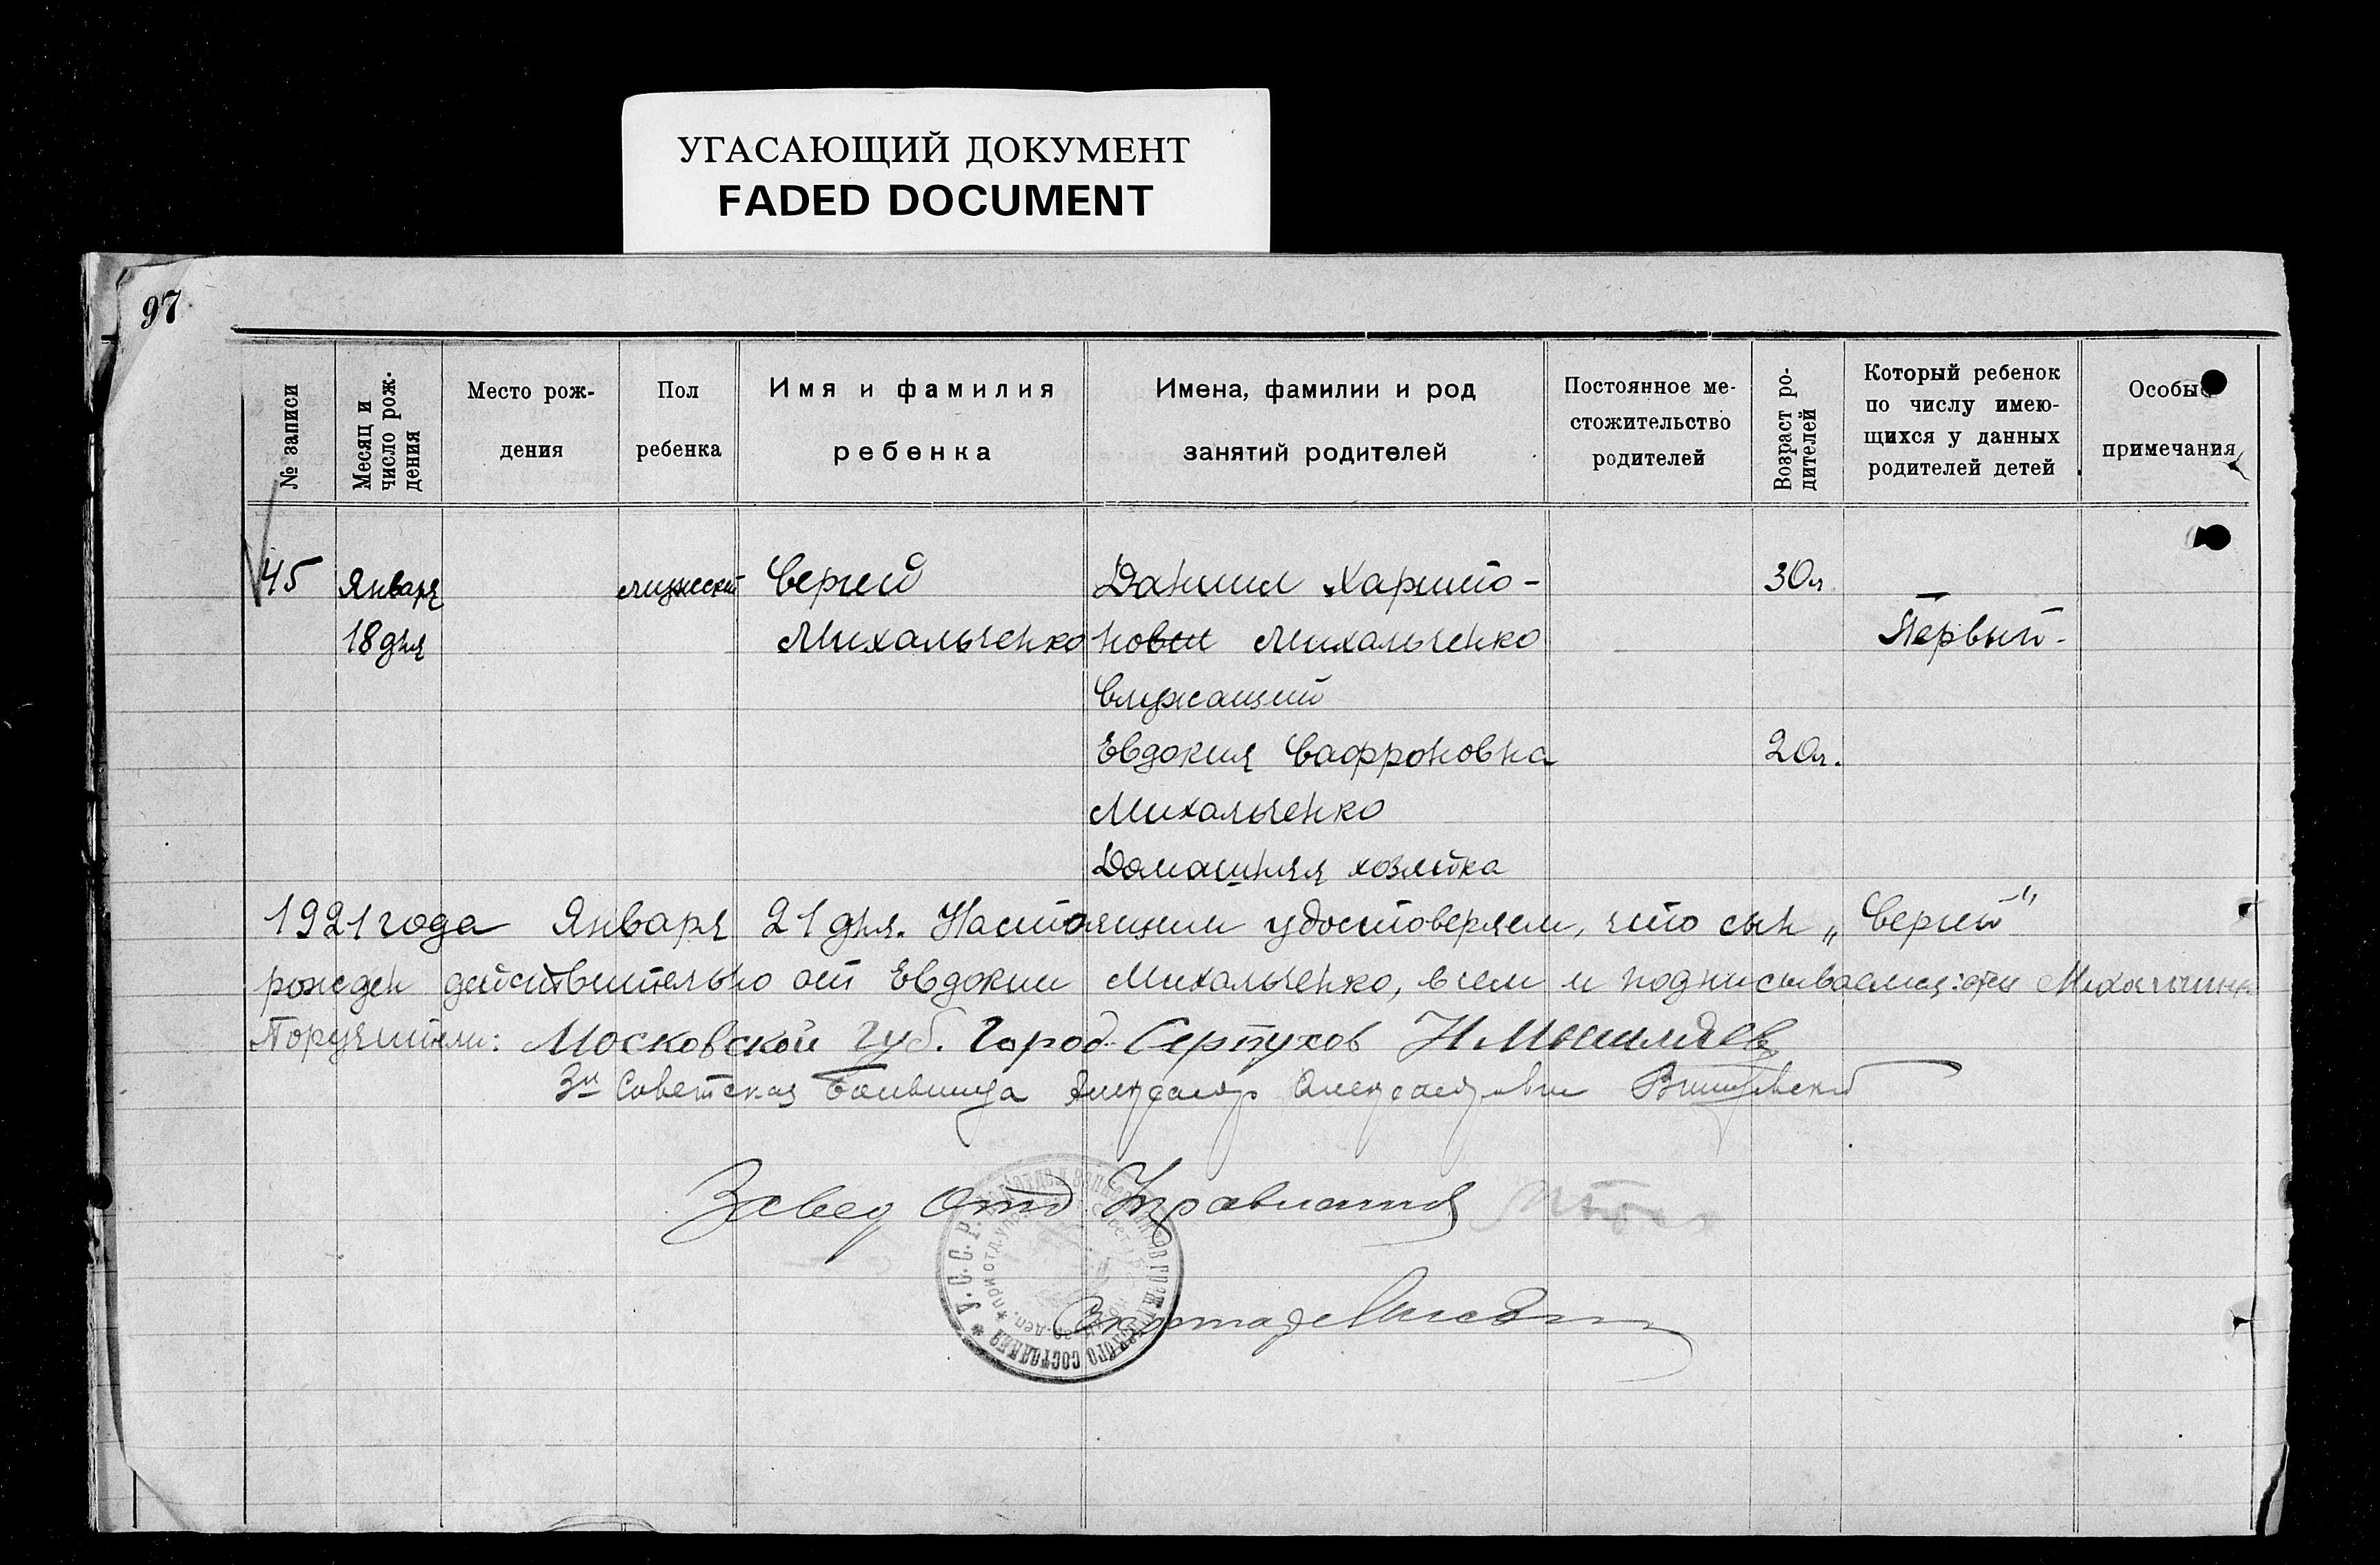 УГАСАЮЩИЙ ДОКУМЕНТ
FADED DOCUMENT
97
№ записи
Месяц и
число рож-
дения
Место рож-
дения
Пол
ребенка
Имя и фамилия
ребенка
Имена, фамилии и род
занятий родителей
Постоянное ме-
стожительство
родителей
Возраст ро-
дителей
Который ребенок
по числу имею-
щихся у данных
родителей детей
Особые
примечания
45
Января
18 дня
мужеский
Сергей
Михальченко
Даниил Харито-
нович Михальченко
Служащий
Евдокия Сафроновна
Михальченко
Домашняя хозяйка
30 л.
20 л.
Первый
1921 года Января 21 дня. Настоящим удостоверяем, что сын „Сергей"
рожден действительно от Евдокии Михальченко, в чем и подписываемся:
Поручители: Московской губ. Город Серпухов Н
3я Советская Больница Александр Александрович
Завед Отд
У.С.С.Р.